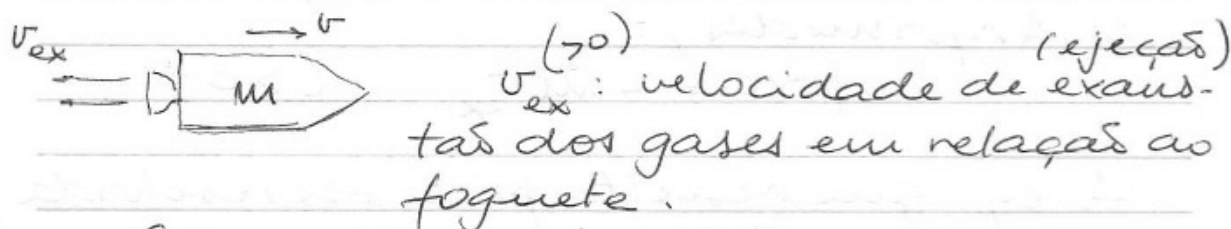 v (>0) (ejeção)
v_ex m v_ex: velocidade de exaus-
tão dos gases em relação ao
foguete.